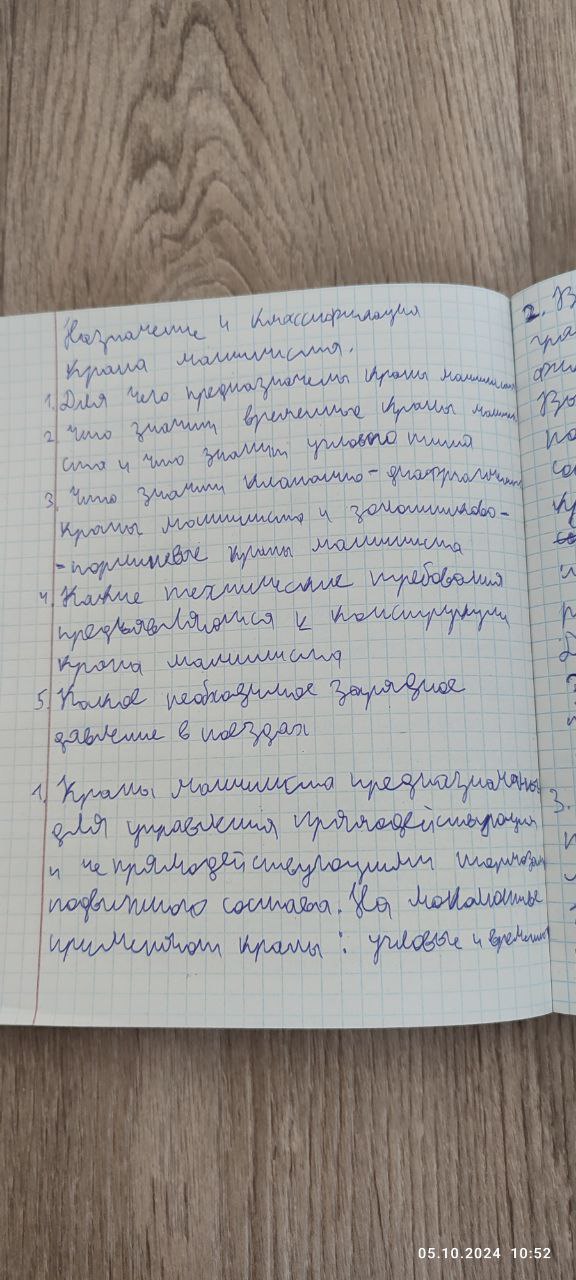 Назначение и классификация
крана машиниста.
1. Для чего предназначены краны машиниста
2. Что значит временные краны машини
ста и что значит углового типа
3. Что значит клапанно-диафрагменные
краны машиниста и золотниково-
-поршневые краны машиниста
4. Какие технические требования
предъявляются к конструкции
крана машиниста
5. Какое необходимое зарядное
давление в поездах
1. Краны машиниста предназначены
для управления прямодействующим
и не прямодействующими тормозам
подвижного состава. На локомотиве
применяют краны: угловые и времен
2. В
3.
05.10.2024 10:52